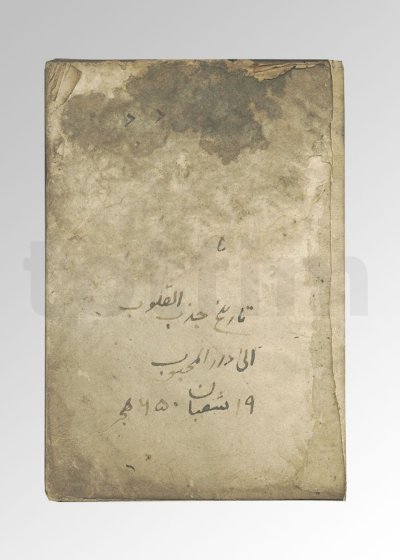 تا
تاریخ جذب القلوب
الیٰ دار المحبوب
۱۹ شعبان ۶۵۰ ھج